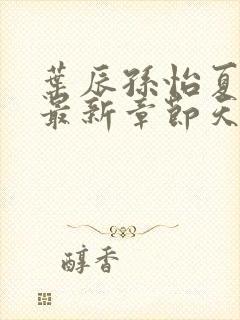 葉辰孫怡夏
最新章節天
醇香